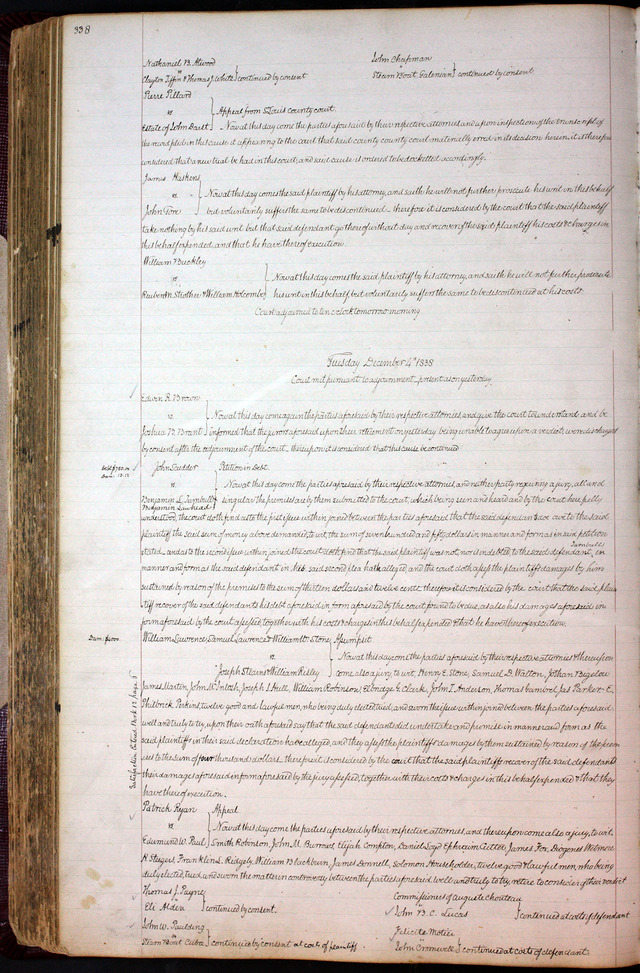 338
Nathaniel B. Atwood
vs
Clayton Tiffin & Thomas J. White } continued by consent
John Chapman
vs
Steam Boat Galenian } continued by consent
Pierre Pillard
vs } Appeal from St Louis county court
Estate of John Baist Now at this day come the parties aforesaid by their respective attornies and upon inspection of the transcript of
the record filed in this cause it appearing to the court that said county court materially erred in its decision herein it is therefore
considered that a new trial be had in this court, and said cause is ordered to be docketted accordingly.
James Haskens
vs Now at this day comes the said plaintiff by his attorney, and saith he will not further prosecute his writ in this behalf
John Tore but voluntarily suffers the same to be discontinued — therefore it is considered by the court that the said plaintiff
take nothing by his said writ but that said defendant go thereof without day and recover of the said plaintiff his costs & charges in
this behalf expended, and that he have thereof execution.
William Buckley
vs } Now at this day comes the said plaintiff by his attorney, and saith he will not further prosecute
Reuben Strother & William Holcombe his writ in this behalf but voluntarily suffers the same to be discontinued at his costs.
Court adjourned to ten o'clock tomorrow morning
Tuesday December 4th 1838
Court met pursuant to adjournment, present as on yesterday.
Edwin R. Brown
vs } Now at this day come again the parties aforesaid by their respective attornies and give the court to understand and be
Joshua B. Brant informed that the jurors aforesaid upon their retirement on yesterday being unable to agree upon a verdict, were discharged
by consent after the adjournment of the court, thereupon it is considered that this cause be continued.
Debt $750.00
Dam. 13.12
John Gadder Petition in Debt.
vs } Now at this day come the parties aforesaid by their respective attornies and neither party requiring a jury, all and
Benjamin L. Turnbull & singular the premises are by them submitted to the court, which being seen and heard and by the court here fully
Benjamin Lawhead
understood, the court doth find as to the first issue within joined between the parties aforesaid that the said defendants doe owe to the said
plaintiff the said sum of money above demanded to wit, the sum of seven hundred and fifty dollars in manner and form as in said petition
stated, and as to the second issue within joined the court doth find that the said plaintiff was not, nor is indebted to the said defendant, Turnbull in
manner and form as the said defendant in his said second plea hath alleged, and the court doth assess the plaintiff damages by him
sustained by reason of the premises to the sum of thirteen dollars and twelve cents, therefore it is considered by the court that the said plain
tiff recover of the said defendants his debt aforesaid in form aforesaid by the court found to be due, as also his damages aforesaid in
form aforesaid by the court assessed, together with his costs & charges in this behalf expended & that he have thereof execution.
Dam: $4000
William Lawrence Samuel Lawrence & William W. Stone } Assumpsit
vs } Now at this day come the parties aforesaid by their respective attornies & thereupon
Joseph Stearns & William Risley come also a jury, to wit, Henry E. Stone, Samuel D. Walton, Jothan Bigelow
James Martin, John McIntosh, Joseph S. Hull, William Robinson, Elbridge G. Clark, John T. Anderson, Thomas Gamirol Jas Parker & E.
Philbrick Perkins, twelve good and lawful men, who being duly elected, tried, and sworn the issue within joined between the parties aforesaid
well and truly to try, upon their oath aforesaid say that the said defendants did undertake and promise in manner and form as the
said plaintiffs in their said declaration have alleged, and they assess the plaintiffs damages by them sustained by reason of the prem
ises to the sum of four thousand dollars, therefore it is considered by the court that the said plaintiffs recover of the said defendants
their damages aforesaid in form aforesaid by the jury assessed, together with their costs & charges in this behalf expended & that they
have thereof execution.
Satisfaction Entered Book 12 page 5
Patrick Ryan Appeal
vs } Now at this day come the parties aforesaid by their respective attornies, and thereupon come also a jury, to wit
Edmund W. Paul, Smith Robinson, John M. Burrows, Elijah Compton, Daniel Sayd, Ephraim Cutter, James Fox, Diogenes Wetmore
H Steger, Franklin L. Ridgely, William Blackburn, James Donnell, Solomon Householder, twelve good & lawful men, who being
duly elected, tried and sworn the matter in controversy between the parties aforesaid well and truly to try, retire to consider of their verdict
Thomas J. Payne
vs
Eli Alden } continued by consent.
Commissioners of Auguste Chouteau
vs
John B. C. Lucas } continued at costs of defendant
John W. Paulding
vs
Steam Boat Cuba } continued by consent at costs of plaintiff
Felicite Motier
vs
John Cromwell } continued at costs of defendant